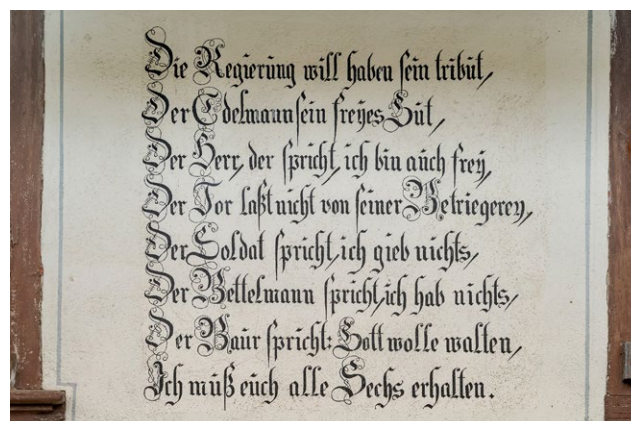 Die Regierung will haben sein tribut,
Der Edelmann sein freyes Gut,
Der Herr, der spricht, ich bin auch frey,
Der Tor laßt nicht von seiner Betriegerey,
Der Soldat spricht, ich gieb nichts,
Der Bettelmann spricht, ich hab nichts,
Der Baur spricht: Gott wolle walten,
Ich muß euch alle Sechs erhalten.